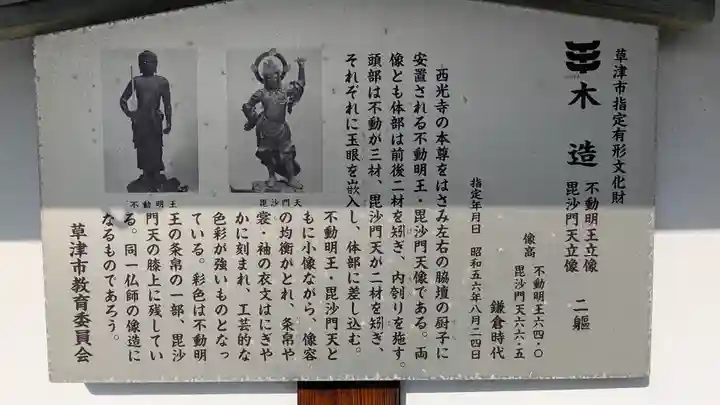 草津市指定有形文化財
木造 不動明王立像
毘沙門天立像 二軀
像高 不動明王六四・〇
毘沙門天六六・五
鎌倉時代
指定年月日 昭和五六年八月二四日
西光寺の本尊をはさみ左右の脇壇の厨子に
安置される不動明王・毘沙門天像である。両
像とも体部は前後二材を矧ぎ、内刳りを施す。
頭部は不動が三材、毘沙門天が二材を矧ぎ、
それぞれに玉眼を嵌入し、体部に差し込む。
不動明王・毘沙門天と
もに小像ながら、像容
の均衡がとれ、条帛や
裳・袖の衣文はにぎや
かに刻まれ、工芸的な
色彩が強いものとなっ
ている。彩色は不動明
王の条帛の一部、毘沙
門天の膝上に残してい
る。同一仏師の像造に
なるものであろう。
草津市教育委員会
毘沙門天
不動明王